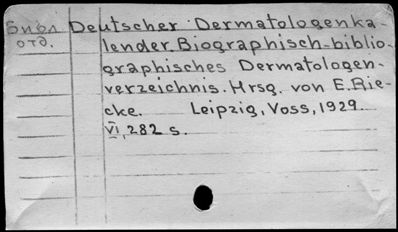 Библ Deutscher Dermatologenka-
отд. lender. Biographisch-biblio-
graphisches Dermatologen-
verzeichnis. Hrsg. von E. Rie-
cke. Leipzig, Voss, 1929.
VI, 282 s.